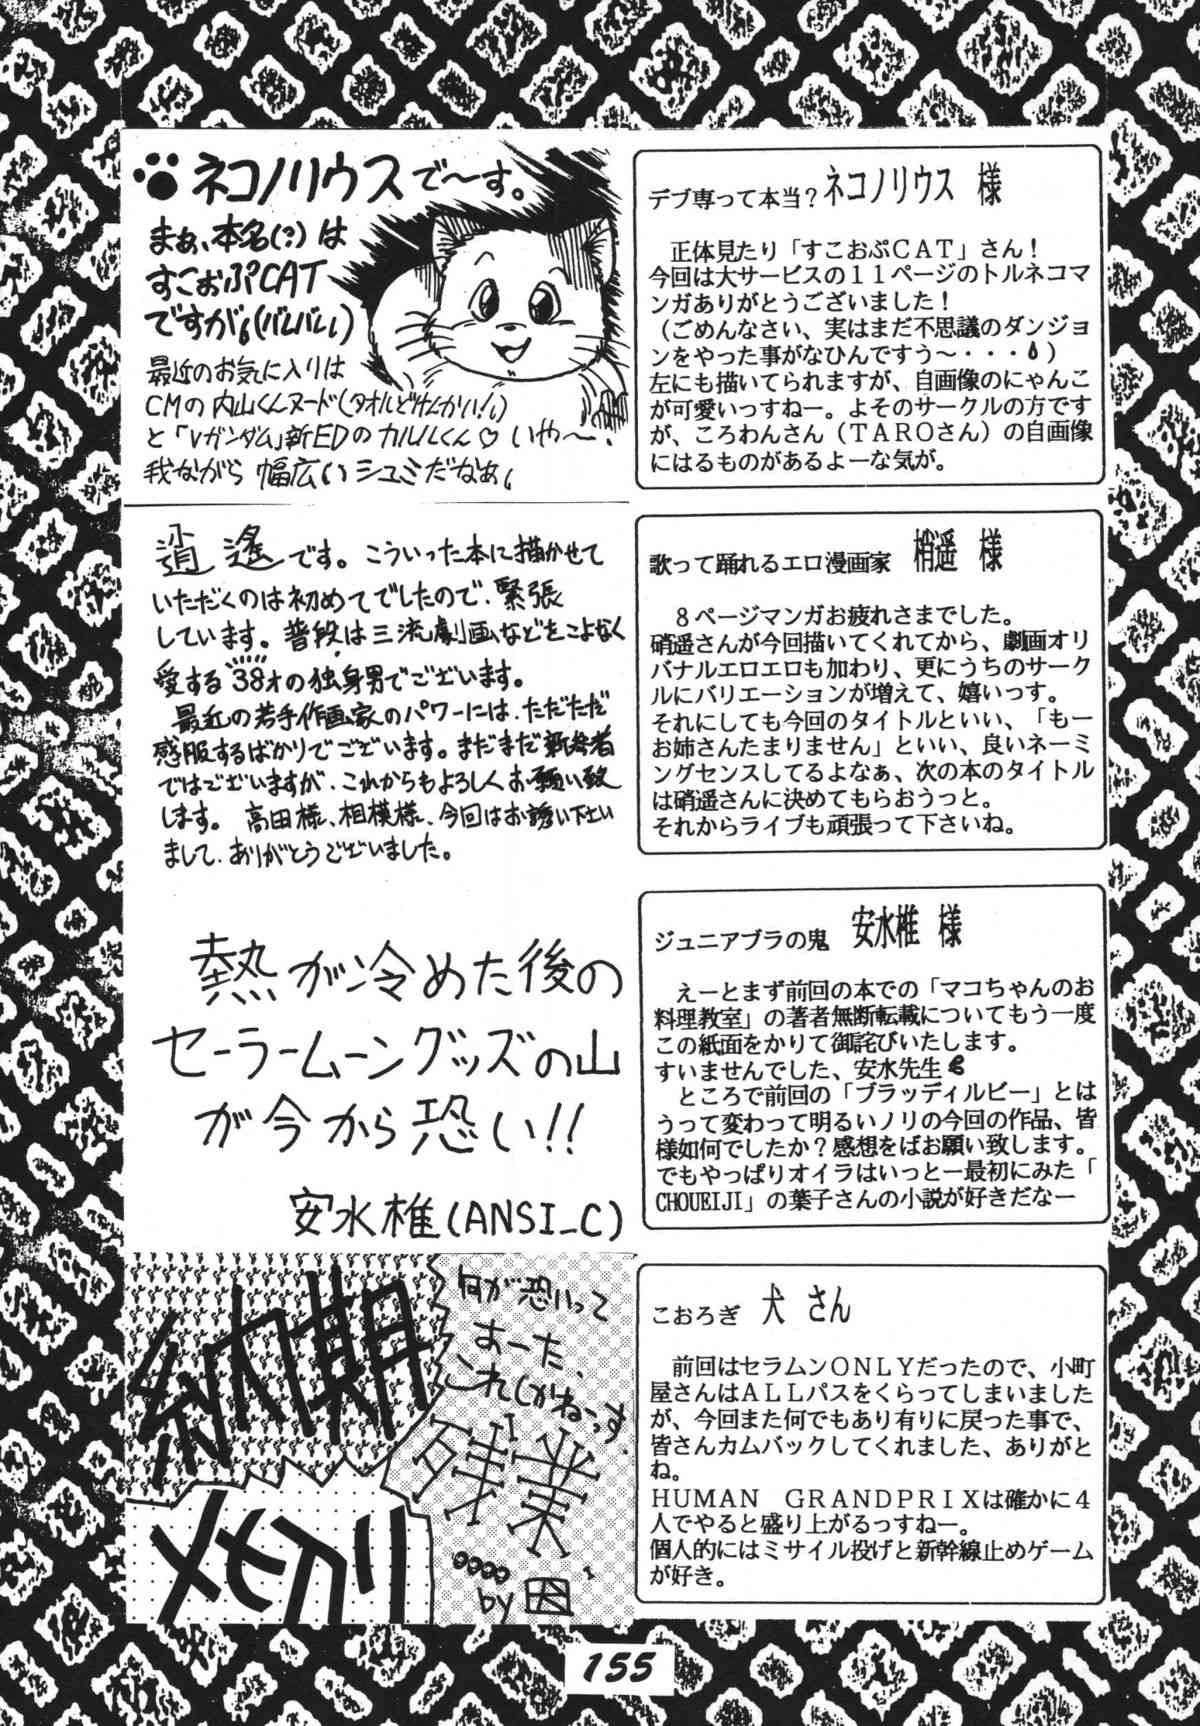 ネコノリウスで〜す。
まぁ、本名(?)は
すこおぷCAT
ですが。(バレバレ)
最近のお気に入りは
CMの内山くんヌード(タオルどけんかい!)
と「Vガンダム」新EDのカルルくん♡いや〜、
我ながら幅広いシュミだなぁ。
デブ専って本当?ネコノリウス 様
正体見たり「すこおぷCAT」さん!
今回は大サービスの11ページのトルネコマ
ンガありがとうございました!
(ごめんなさい、実はまだ不思議のダンジョ
ンをやった事がなひんですう〜・・・)
左にも描いてられますが、自画像のにゃんこ
が可愛いっすねー。よそのサークルの方です
が、ころわんさん(TAROさん)の自画像
にはるものがあるよーな気が。
逍遙です。こういった本に描かせて
いただくのは初めてでしたので、緊張
しています。普段は三流劇画などをこよなく
愛する38才の独身男でございます。
最近の若手作画家のパワーには、ただただ
感服するばかりでございます。まだまだ新参者
ではございますが、これからもよろしくお願い致
します。高田様、相模様、今回はお誘い下さい
まして、ありがとうございました。
歌って踊れるエロ漫画家 梢遥 様
8ページマンガお疲れさまでした。
硝遥さんが今回描いてくれてから、劇画オリ
バナルエロエロも加わり、更にうちのサーク
ルにバリエーションが増えて、嬉いっす。
それにしても今回のタイトルといい、「もー
お姉さんたまりません」といい、良いネーミ
ングセンスしてるよなぁ、次の本のタイトル
は硝遥さんに決めてもらおうっと。
それからライブも頑張って下さいね。
熱が冷めた後の
セーラームーングッズの山
が今から恐い!!
安水椎(ANSI_C)
ジュニアブラの鬼 安水椎 様
えーとまず前回の本での「マコちゃんのお
料理教室」の著者無断転載についてもう一度
この紙面をかりて御詫びいたします。
すいませんでした、安水先生
ところで前回の「ブラッディルビー」とは
うって変わって明るいノリの今回の作品、皆
様如何でしたか?感想をばお願い致します。
でもやっぱりオイラはいっとー最初にみた「
CHOUEIJI」の葉子さんの小説が好きだなー
納期
メモリ
何が恐いって
よーた、
これしかねーっす。
残業
....
by
こおろぎ 犬 さん
前回はセラムンONLYだったので、小町
屋さんはALLパスをくらってしまいました
が、今回また何でもあり有りに戻った事で、
皆さんカムバックしてくれました、ありがと
ね。
HUMAN GRANDPRIXは確かに4
人でやると盛り上がるっすねー。
個人的にはミサイル投げと新幹線止めゲーム
が好き。
155